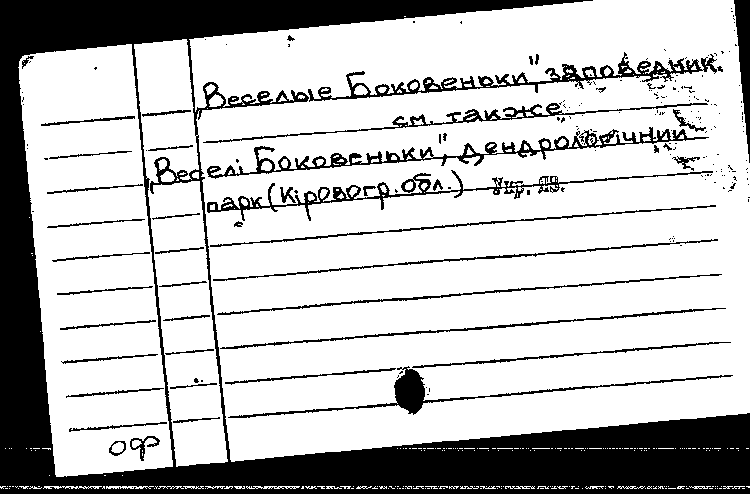 „Веселые Боковеньки", заповедник.
см. також
„Веселі Боковеньки", дендрологічний
парк (Кіровогр. обл.) Укр. яз.
оф